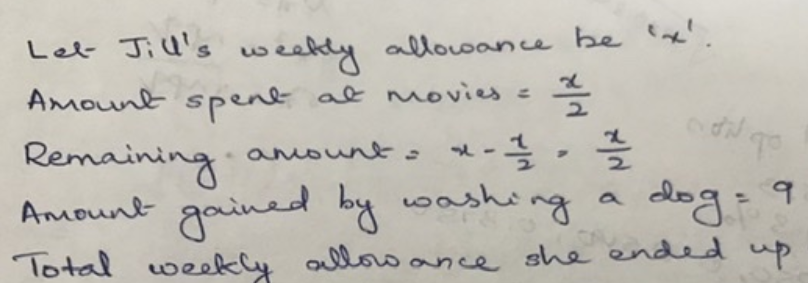 Let Jill's weekly allowance be 'x'.
Amount spent at movies = x/2
Remaining amount = x - x/2 = x/2
Amount gained by washing a dog = 9
Total weekly allowance she ended up